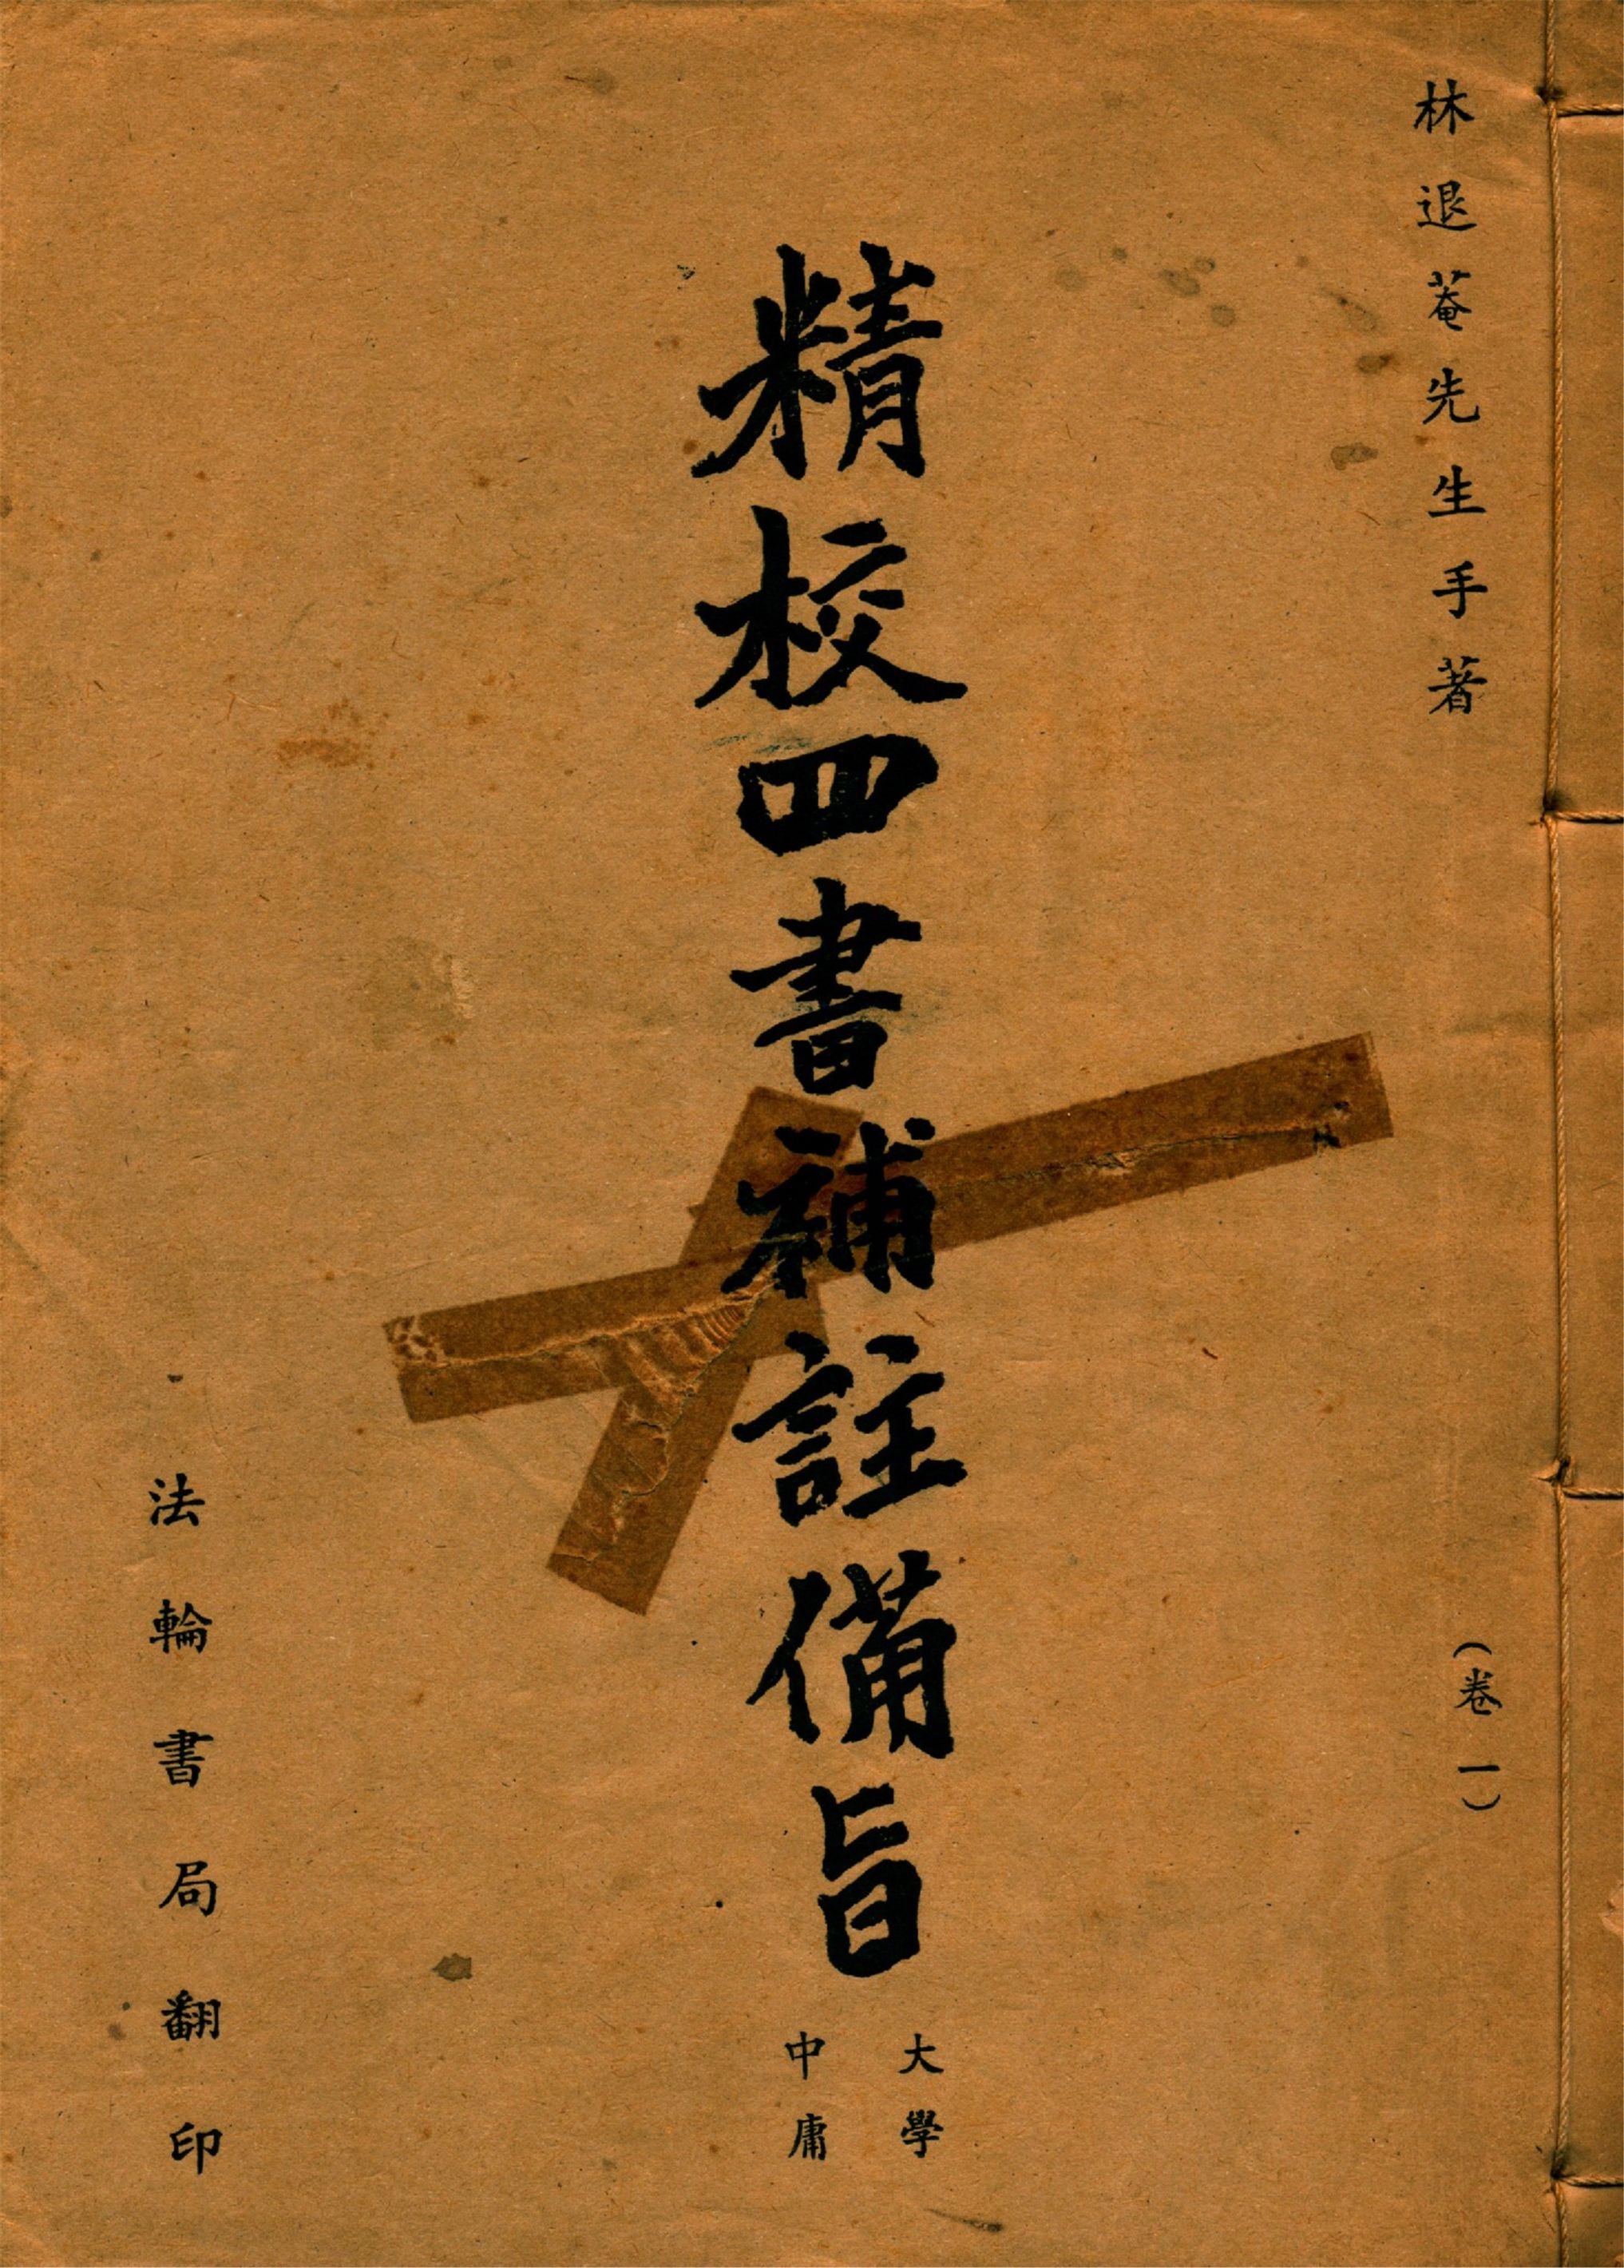 林退菴先生手著
(卷一)
精校四書補註備旨
大學
中庸
法輪書局翻印